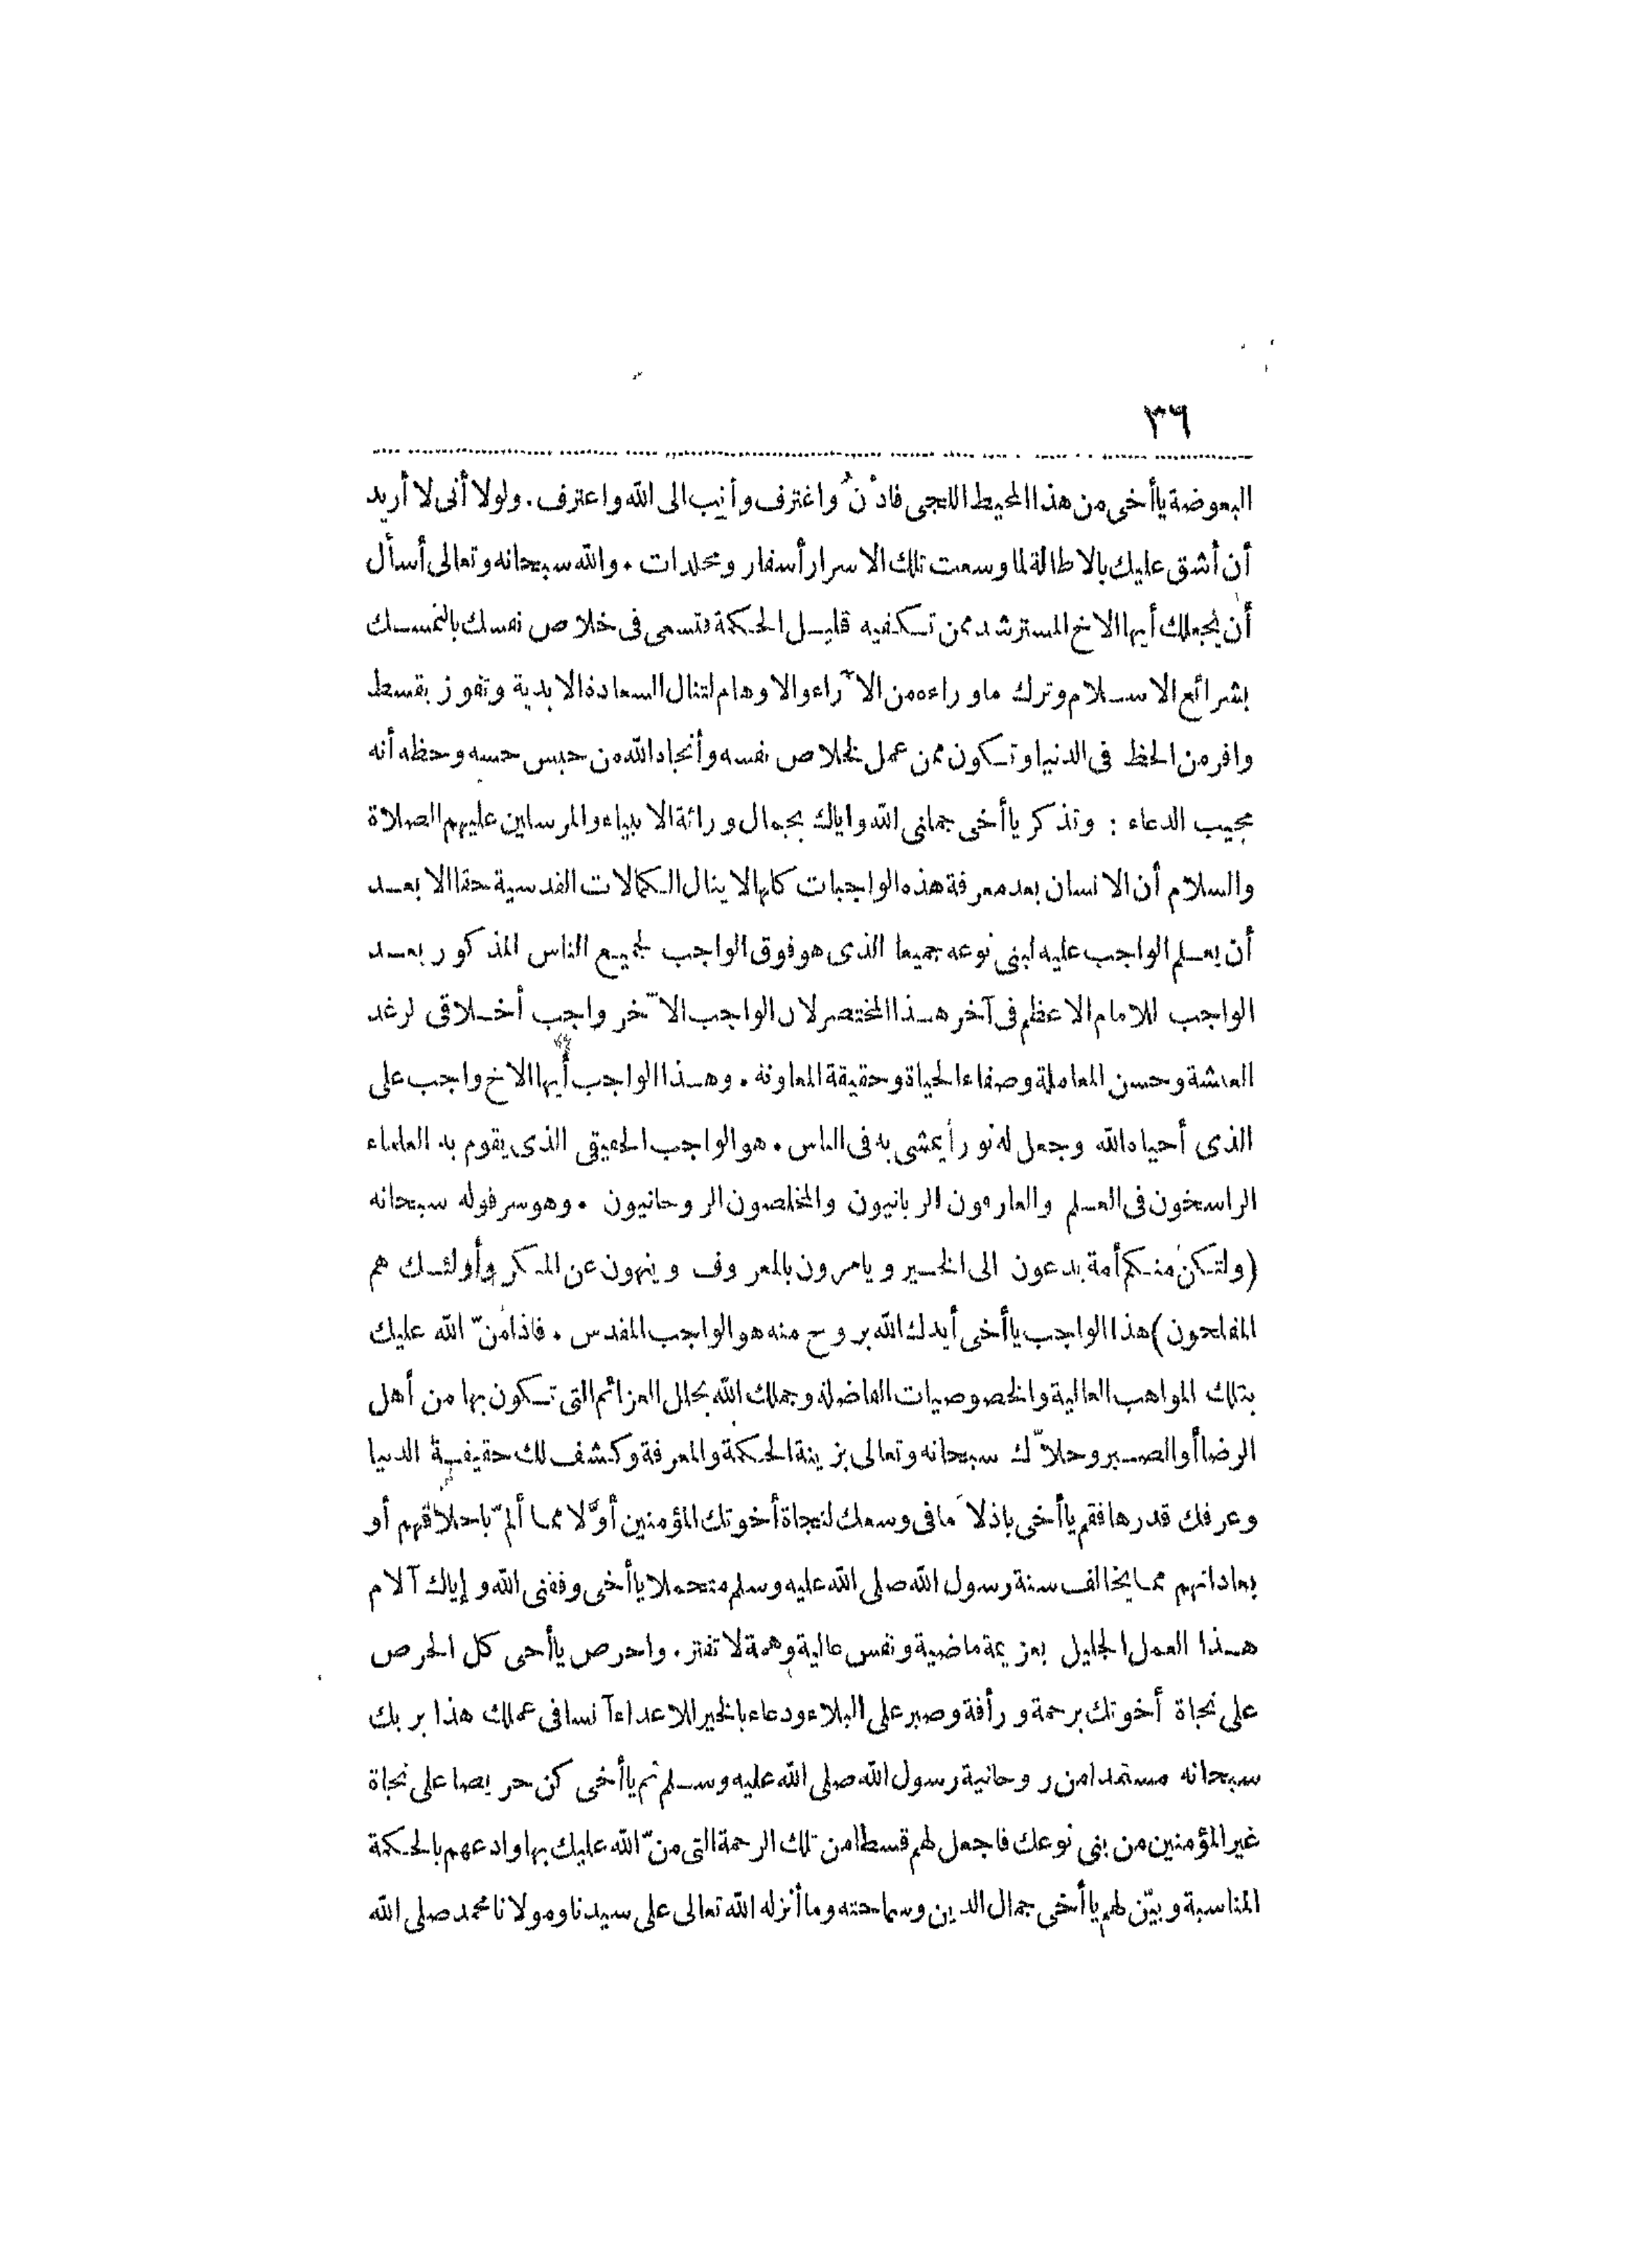 ٣٦
البعوضة ياأخى من هذا المحيط اللجى فادْنُ واغترف وأنيب الى الله واعترف. ولولا أنى لا أريد
أن أشق عليك بالاطالة لما وسعت تلك الاسرار أسفار ومجلدات. والله سبحانه وتعالى أسأل
أن يجعلك أيها الاخ المسترشد ممن تكفيه قليل الحكمة فتسعى فى خلاص نفسك بالتمسك
بشرائع الاسلام وترك ماوراءه من الآراء والاوهام لتنال السعادة الابدية وتفوز بقسط
وافر من الحظ فى الدنيا وتكون ممن عمل لخلاص نفسه وأنجاه الله من حبس حسه وحظه أنه
مجيب الدعاء : وتذكر ياأخى جملنى الله واياك بجمال وراثة الانبياء والمرسلين عليهم الصلاة
والسلام أن الانسان بعد معرفة هذه الواجبات كلها لا ينال الكمالات القدسية حقا الا بعد
أن يعلم الواجب عليه لبنى نوعه جميعا الذى هو فوق الواجب لجميع الناس المذكور بعد
الواجب للامام الاعظم فى آخر هذا المختصر لان الواجب الآخر واجب أخلاقى لرغد
العيشة وحسن المعاملة وصفاء الحياة وحقيقة المعاونة. وهذا الواجب أيها الاخ واجب على
الذى أحياه الله وجعل له نوراً يمشى به فى الناس. هو الواجب الحقيقى الذى يقوم به العلماء
الراسخون فى العلم والعارفون الربانيون والمخلصون الروحانيون. وهو سر قوله سبحانه
(ولتكن منكم أمة يدعون الى الخير ويامرون بالمعروف وينهون عن المنكر وأولئك هم
المفلحون) هذا الواجب ياأخى أيدك الله بروح منه هو الواجب المقدس. فاذا منّ الله عليك
بتلك المواهب العالية والخصوصيات الفاضلة وجملك الله بحلل العزائم التى تكون بها من أهل
الرضا أو الصبر وحلاّك سبحانه وتعالى بزينة الحكمة والمعرفة وكشف لك حقيقة الدنيا
وعرفك قدرها فقم ياأخى باذلا مافى وسعك لنجاة أخوتك المؤمنين أوّلا مما ألمّ باخلاقهم أو
بعاداتهم مما يخالف سنة رسول الله صلى الله عليه وسلم متحملا ياأخى وفقنى الله وإياك آلام
هذا العمل الجليل بعزيمة ماضية ونفس عالية وهمة لا تفتر. واحرص ياأخى كل الحرص
على نجاة أخوتك برحمة ورأفة وصبر على البلاء ودعاء بالخير للاعداء آنسا فى عملك هذا بربك
سبحانه مستمدا من روحانية رسول الله صلى الله عليه وسلم ثم ياأخى كن حريصا على نجاة
غير المؤمنين من بنى نوعك فاجعل لهم قسطا من تلك الرحمة التى منّ الله عليك بها وادعهم بالحكمة
المناسبة وبيّن لهم ياأخى جمال الدين وسماحته وما أنزله الله تعالى على سيدنا ومولانا محمد صلى الله